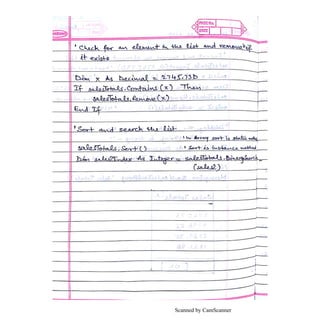 ' Check for an element in the list and remove if
it exists
Dim x As Decimal = 2745.73D
If salesTotals.Contains (x) Then
salesTotals.Remove (x)
End If
' Sort and search the list
' In Array sort is static met
salesTotals.Sort () ' Sort is instance method
Dim salesIndex As Integer = salesTotals.BinarySearch
(sales2)
Scanned by CamScanner